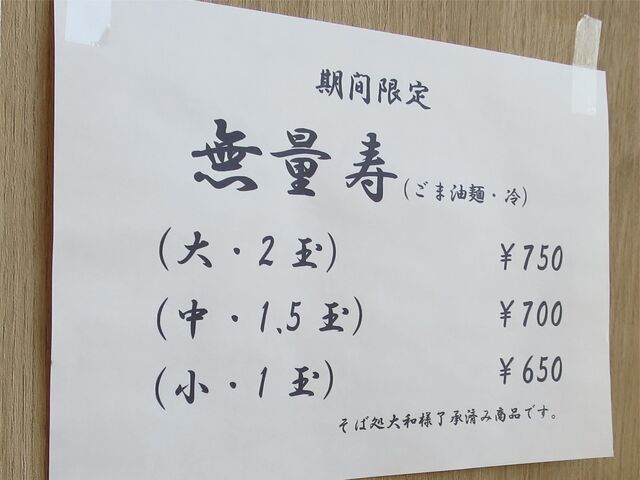 期間限定
無量寿(ごま油麺・冷)
(大・2玉) ¥750
(中・1.5玉) ¥700
(小・1玉) ¥650
そば処大和様了承済み商品です。